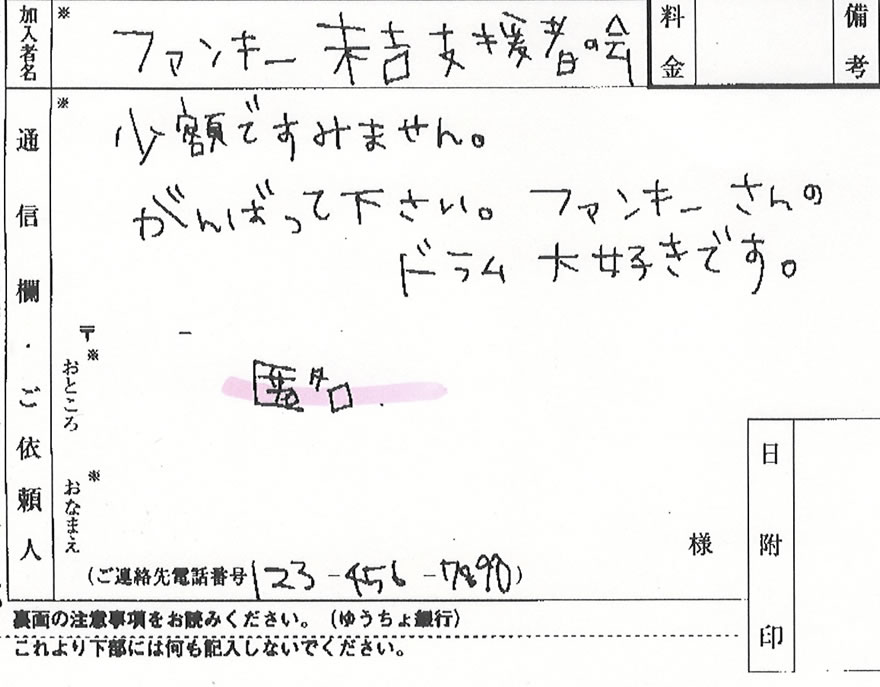 加入者名
※
ファンキー末吉支援者の会
料金
備考
通信欄・ご依頼人
※
少額ですみません。
がんばって下さい。ファンキーさんの
ドラム大好きです。
〒 -
おところ※
匿名.
おなまえ※
様
(ご連絡先電話番号 123-456-7890)
日附印
裏面の注意事項をお読みください。(ゆうちょ銀行)
これより下部には何も記入しないでください。